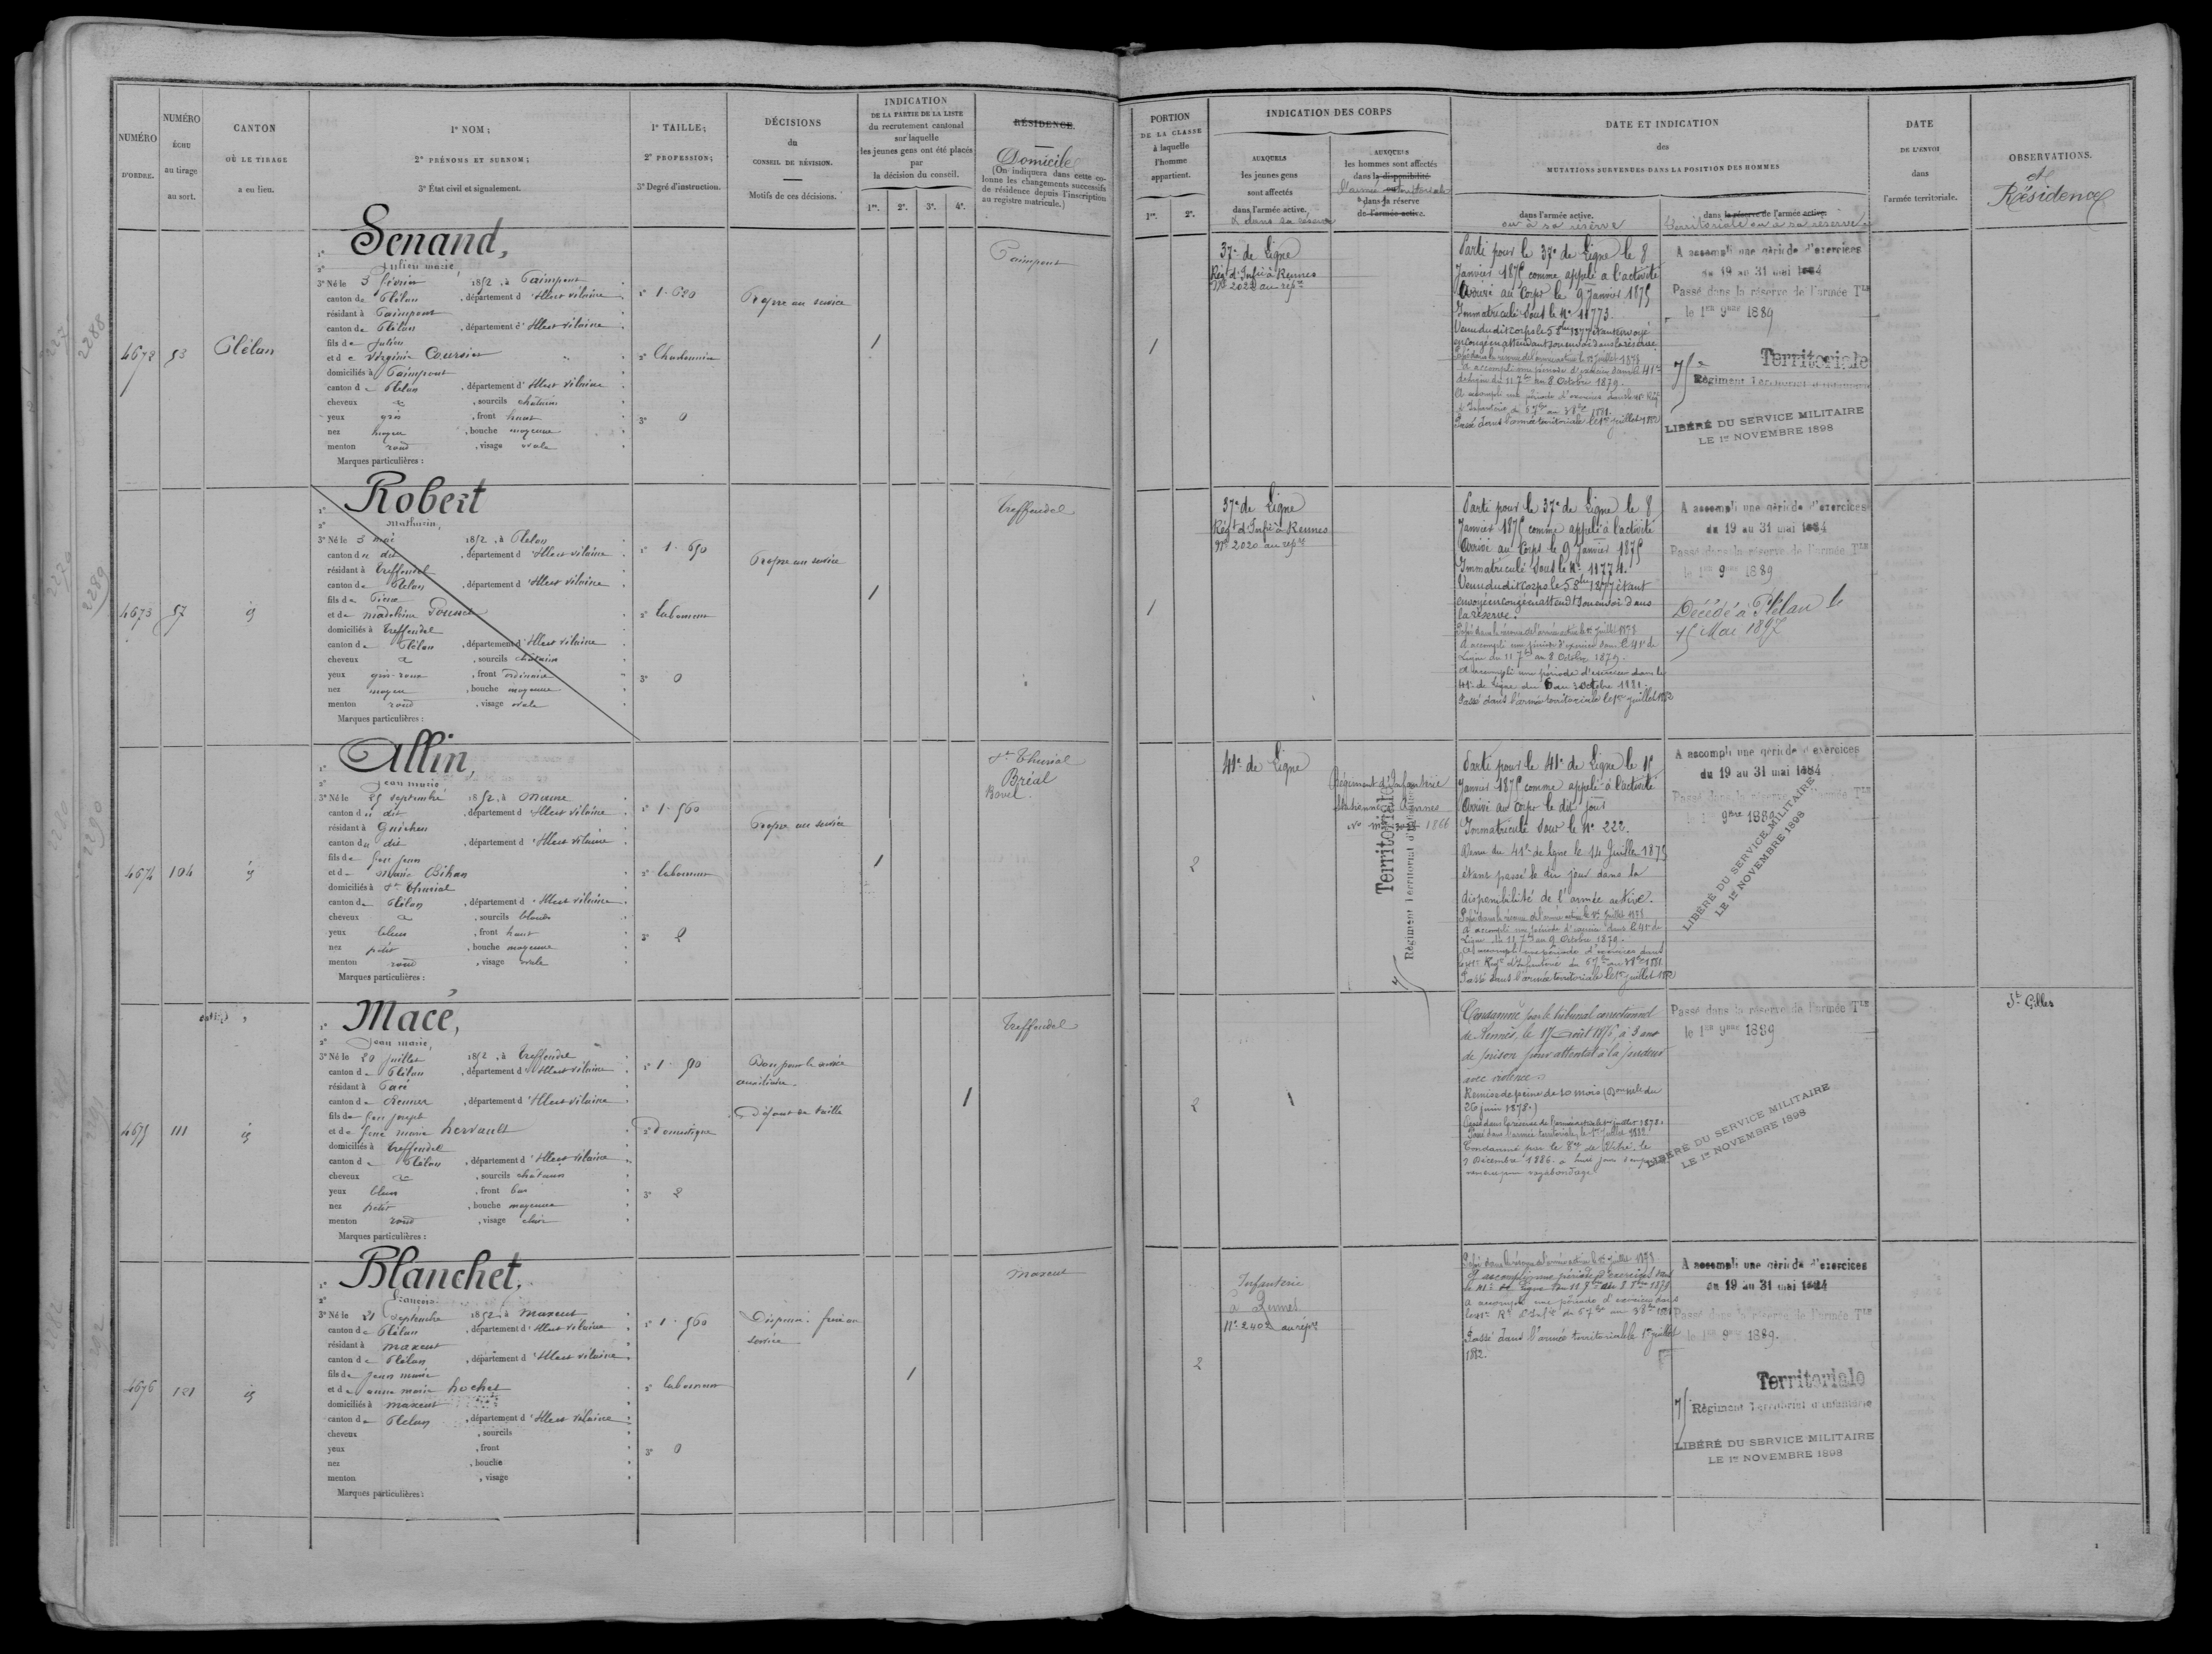 NUMÉRO
D'ORDRE.
NUMÉRO
ÉCHU
au tirage
au sort.
CANTON
OÙ LE TIRAGE
a eu lieu.
1° NOM;
2° PRÉNOMS ET SURNOM;
3° État civil et signalement.
1° TAILLE;
2° PROFESSION;
3° Degré d'instruction.
DÉCISIONS
du
CONSEIL DE RÉVISION.
Motifs de ces décisions.
INDICATION
DE LA PARTIE DE LA LISTE
du recrutement cantonal
sur laquelle
les jeunes gens ont été placés
par
la décision du conseil.
1re. 2e. 3e. 4e.
RÉSIDENCE.
Domicile
(On indiquera dans cette co-
lonne les changements successifs
de résidence depuis l'inscription
au registre matricule.)
4672
53
Plélan
1° Senand,
2° Julien marie,
3° Né le 3 février 1852, à Paimpont
canton de Plélan, département d'Ille et vilaine
résidant à Paimpont
canton de Plélan, département d'Ille et vilaine
fils de Julien
et de Virginie Coursier
domiciliés à Paimpont
canton de Plélan, département d'Ille et vilaine
cheveux et, sourcils châtains
yeux gris, front haut
nez moyen, bouche moyenne
menton rond, visage ovale
Marques particulières :
2° Charbonnier
3° 0
Propre au service
1
Paimpont
4673
57
id
1° Robert
2° Mathurin,
3° Né le 3 mai 1852, à Plélan
canton du dit, département d'Ille et vilaine
résidant à Treffendel
canton de Plélan, département d'Ille et vilaine
fils de Pierre
et de Madeleine
domiciliés à Treffendel
canton de Plélan, département d'Ille et vilaine
cheveux et, sourcils châtains
yeux gris-roux, front ordinaire
nez moyen, bouche moyenne
menton rond, visage ovale
Marques particulières :
1° 1.650
2° laboureur
3° 0
Propre au service
1
Treffendel
4674
104
id
1° Allin,
2° Jean marie
3° Né le 25 septembre 1852, à Maure
canton du dit, département d'Ille et vilaine
résidant à Guichen
canton du dit, département d'Ille et vilaine
fils de feu Jean
et de Marie Bihan
domiciliés à St Thurial
canton de Plélan, département d'Ille et vilaine
cheveux et, sourcils blonds
yeux bleus, front haut
nez petit, bouche moyenne
menton rond, visage ovale
Marques particulières :
1° 1.560
2° laboureur
3° 2
Propre au service
1
St Thurial
Bréal
Bovel
4675
111
id
1° Macé,
2° Jean marie,
3° Né le 29 juillet 1852, à Treffendel
canton de Plélan, département d'Ille et vilaine
résidant à Pacé
canton de Rennes, département d'Ille et vilaine
fils de feu joseph
et de feue marie hervault
domiciliés à Treffendel
canton de Plélan, département d'Ille et vilaine
cheveux et, sourcils châtains
yeux bleus, front bas
nez petit, bouche moyenne
menton rond, visage
Marques particulières :
2° Domestique
3° 2
Bon pour le service
auxiliaire.
Défaut de taille
1
Treffendel
4676
121
id
1° Blanchet,
2° François
3° Né le 21 Septembre 1852, à Maxent
canton de Plélan, département d'Ille et vilaine
résidant à Maxent
canton de Plélan, département d'Ille et vilaine
fils de Jean marie
et de anne marie hochet
domiciliés à Maxent
canton de Plélan, département d'Ille et vilaine
cheveux, sourcils
yeux, front
nez, bouche
menton, visage
Marques particulières :
1° 1.560
2° laboureur
3° 0
Dispensé : frère au
service
1
Maxent
PORTION
DE LA CLASSE
à laquelle
l'homme
appartient.
1re. 2e.
INDICATION DES CORPS
AUXQUELS
les jeunes gens
sont affectés
dans l'armée active.
& dans sa réserve
AUXQUELS
les hommes sont affectés
dans la disponibilité
l'armée territoriale
& dans sa réserve
de l'armée active.
DATE ET INDICATION
des
MUTATIONS SURVENUES DANS LA POSITION DES HOMMES
dans l'armée active.
ou à sa réserve
dans la réserve de l'armée active.
territoriale ou à sa réserve
DATE
DE L'ENVOI
dans
l'armée territoriale.
OBSERVATIONS.
et
Résidence
1
37e de Ligne
Régt d'Infie à Rennes
No 2022 au repre
Parti pour le 37e de Ligne le 8
Janvier 1875 comme appelé à l'activité
Arrivé au Corps le 9 Janvier 1875
Immatriculé sous le No 11773.
Venu du dit corps le 5 8bre 1877 étant envoyé
en congé en attendant son envoi dans la réserve
Passé dans la réserve de l'armée active le 1er Juillet 1878
A accompli une période d'exercices dans le 41e
de ligne du 11 7bre au 8 Octobre 1879.
A accompli une période d'exercices dans le 41e Régt
d'Infanterie du 6 7bre au 3 8bre 1881.
Passé dans l'armée territoriale le 1er juillet 1882
A accompli une période d'exercices
du 19 au 31 mai 1884
Passé dans la réserve de l'armée Tle
le 1er 9bre 1889
75e Territoriale
Régiment Territorial d'Infanterie
LIBÉRÉ DU SERVICE MILITAIRE
LE 1er NOVEMBRE 1898
1
37e de Ligne
Régt d'Infie à Rennes
No 2020 au repre
Parti pour le 37e de Ligne le 8
Janvier 1875 comme appelé à l'activité
Arrivé au Corps le 9 Janvier 1875
Immatriculé sous le No 11774.
Venu du dit corps le 5 8bre 1877 étant
envoyé en congé en attendt son envoi dans
la réserve.
Passé dans la réserve de l'armée active le 1er Juillet 1878
A accompli une période d'exercices dans le 41e de
Ligne du 11 7bre au 8 Octobre 1879.
A accompli une période d'exercices dans le
41e de Ligne du 6 au 3 octobre 1881.
Passé dans l'armée territoriale le 1er juillet 1882
A accompli une période d'exercices
du 19 au 31 mai 1884
Passé dans la réserve de l'armée Tle
le 1er 9bre 1889
Décédé à Plélan le
15 Mai 1897
2
41e de Ligne
Régiment d'Infanterie
Stationné à Rennes
1866
Territoriale
Régiment Territorial d'Infanterie
Parti pour le 41e de Ligne le 15
Janvier 1875 comme appelé à l'activité
Arrivé au Corps le dit jour
Immatriculé sous le No 222.
Venu du 41e de ligne le 14 Juillet 1875
étant passé le dit jour dans la
disponibilité de l'armée active.
Passé dans la réserve de l'armée active le 1er Juillet 1878
A accompli une période d'exercices dans le 41e de
Ligne du 11 7bre au 9 Octobre 1879.
A accompli une période d'exercices dans
le 41e Régt d'Infanterie du 6 7bre au 3 8bre 1881
Passé dans l'armée territoriale le 1er juillet 1882
A accompli une période d'exercices
du 19 au 31 mai 1884
Passé dans la réserve de l'armée Tle
le 1er 9bre 1889
LIBÉRÉ DU SERVICE MILITAIRE
LE 1er NOVEMBRE 1898
2
Condamné par le tribunal correctionnel
de Rennes, le 17 Août 1876, à 3 ans
de prison pour attentat à la pudeur
avec violence.
Remise de peine de 10 mois
26 juin 1878.)
Passé dans la réserve de l'armée active le 1er juillet 1878.
Passé dans l'armée territoriale, le 1er Juillet 1882.
Condamné par le de Vitré, le
Décembre 1886 à huit jours
vagabondage
Passé dans la réserve de l'armée Tle
le 1er 9bre 1889
LIBÉRÉ DU SERVICE MILITAIRE
LE 1er NOVEMBRE 1898
St Gilles
2
Infanterie
à Rennes
No 2402 au repre
Passé dans la réserve de l'armée active le 1er juillet 1878
A accompli une période d'exercices dans
le 41e de ligne du 11 7bre au 8 8bre 1879
A accompli une période d'exercices dans
le 41e Rt d'Infie du 6 7bre au 3 8bre 1881
Passé dans l'armée territoriale le 1er juillet
1882.
A accompli une période d'exercices
du 19 au 31 mai 1884
Passé dans la réserve de l'armée Tle
le 1er 9bre 1889.
75e Territoriale
Régiment Territorial d'Infanterie
LIBÉRÉ DU SERVICE MILITAIRE
LE 1er NOVEMBRE 1898